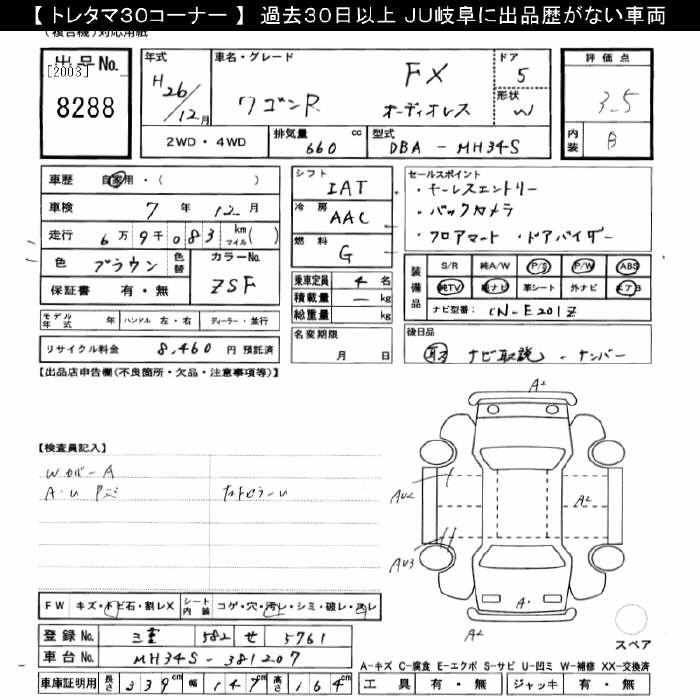 【 トレタマ30コーナー 】 過去30日以上 JU岐阜に出品歴がない車両
(複合機)対応用紙
出品No.
[2003]
8288
年式
H26/12月
車名・グレード
ワゴンR
FX
オーディオレス
ドア
5
形状
W
2WD・4WD
排気量
660 cc
型式
DBA-MH34S
評価点
3.5
内装
B
車歴 自家用・( )
車検 7年 12月
走行 6万9千083 km マイル( )
色 ブラウン 色替
カラーNo.
ZSF
保証書 有・無
シフト
IAT
冷房
AAC
燃料
G
乗車定員 4名
積載量 ― kg
総重量 kg
セールスポイント
・キーレスエントリー
・バックカメラ
・フロアマット ・ドアバイザー
装備品
S/R 純A/W P/S P/W ABS
純TV 純ナビ 革シート 外ナビ エアB
ナビ型番: CN-E201Z
モデル年式 年 ハンドル 左・右 ディーラー・並行
リサイクル料金 8,460 円 預託済
名変期限
月 日
後日品
ナビ取説 - ナンバー
【出品店申告欄(不良箇所・欠品・注意事項等)】
【検査員記入】
Wカバー A
A・U
A2
AU2
A2
AU3
A・
A2
スペア
FW キズ・トビ石・割レX
シート内装 コゲ・穴・汚レ・シミ・破レ・スレ
登録No. 三重 582 せ 5761
車台No. MH34S-381207
車庫証明用 長さ 339cm 幅 147cm 高さ 164cm
A-キズ C-腐食 E-エクボ S-サビ U-凹ミ W-補修 XX-交換済
工具 有・無 ジャッキ 有・無